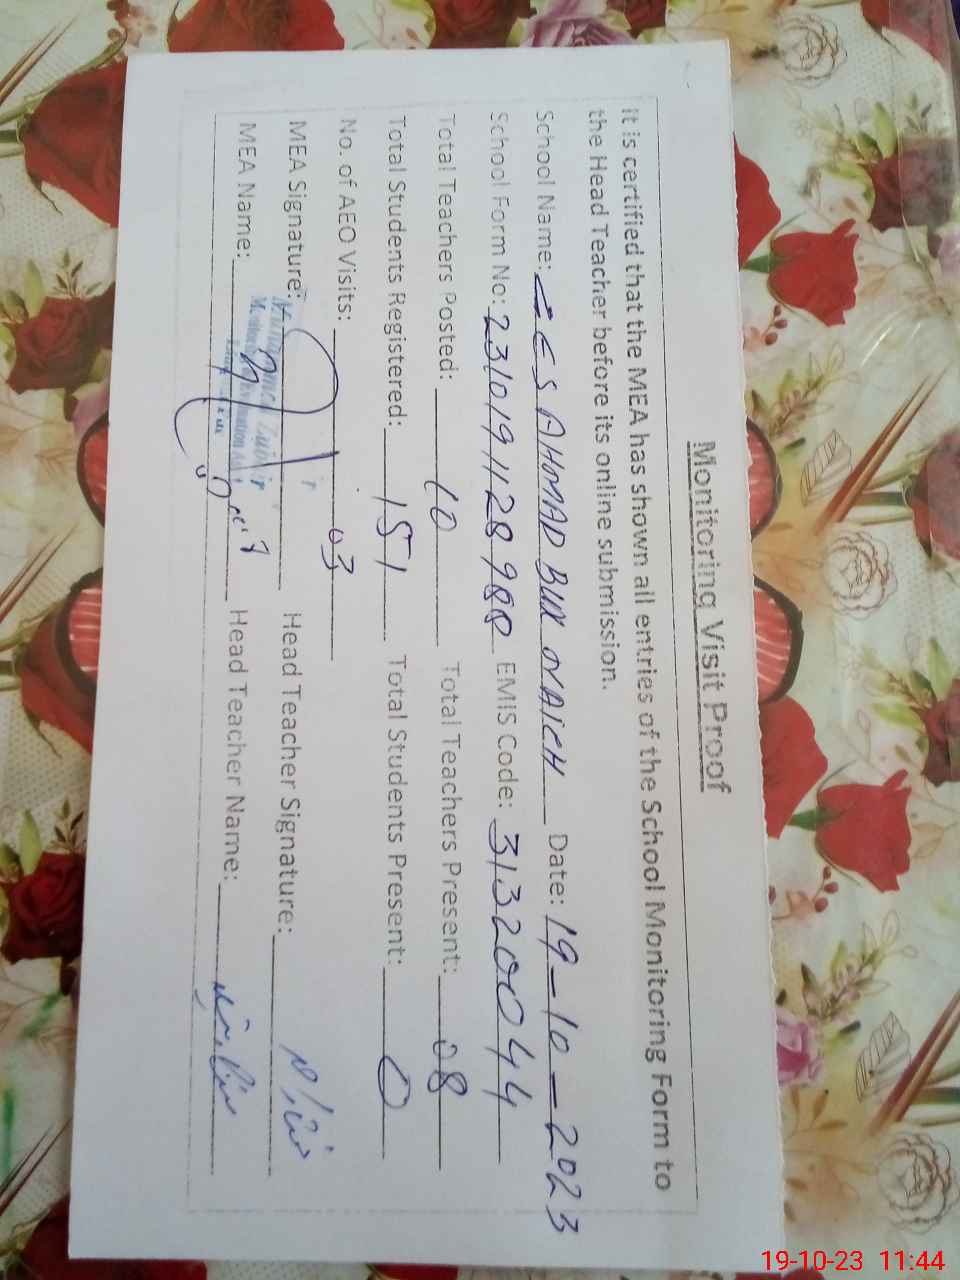 Monitoring Visit Proof
It is certified that the MEA has shown all entries of the School Monitoring Form to
the Head Teacher before its online submission.
School Name: ES AHMAD BUX NAICH Date: 19-10-2023
School Form No: 231019112898 EMIS Code: 31320044
Total Teachers Posted: 10 Total Teachers Present: 08
Total Students Registered: 151 Total Students Present: 0
No. of AEO Visits: 03
MEA Signature: Head Teacher Signature:
MEA Name: Head Teacher Name:
19-10-23 11:44